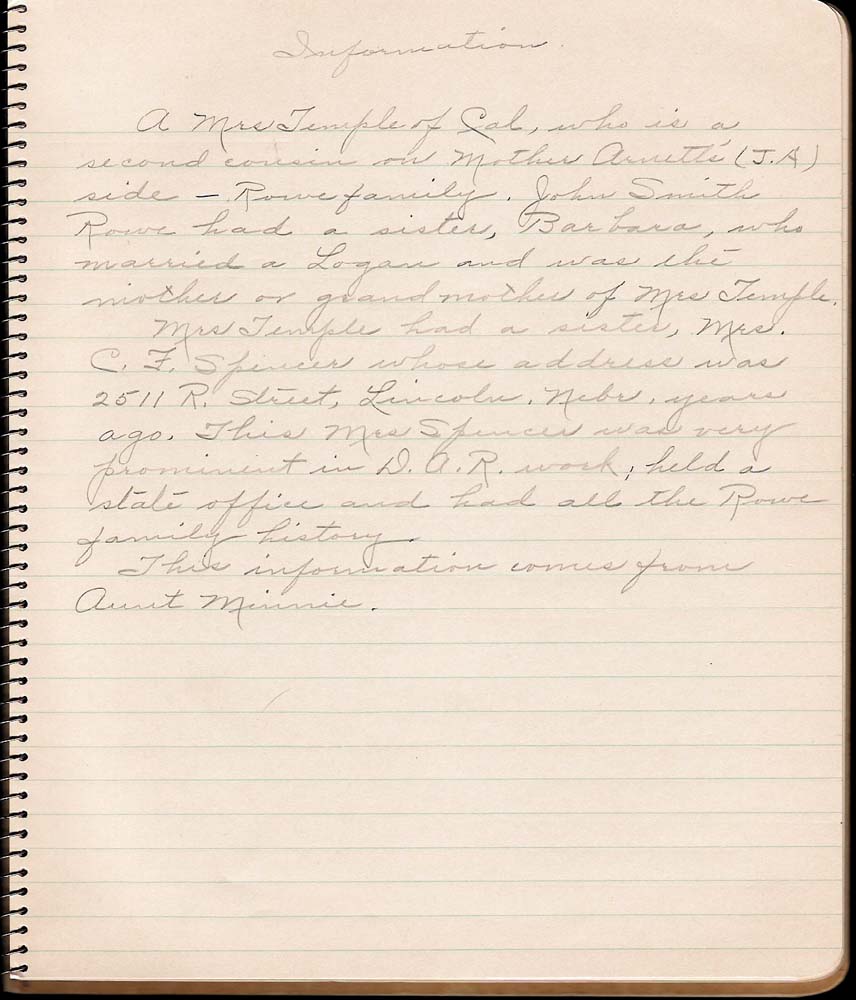 Information.
A Mrs Temple of Cal, who is a
second cousin on Mother Arnett's (J.A)
side - Rowe family. John Smith
Rowe had a sister, Barbara, who
married a Logan and was the
mother or grandmother of Mrs Temple.
Mrs Temple had a sister, Mrs.
C. F. Spencer whose address was
2511 R. Street, Lincoln, Nebr, years
ago. This Mrs Spencer was very
prominent in D.A.R. work; held a
state office and had all the Rowe
family history.
This information comes from
Aunt Minnie.